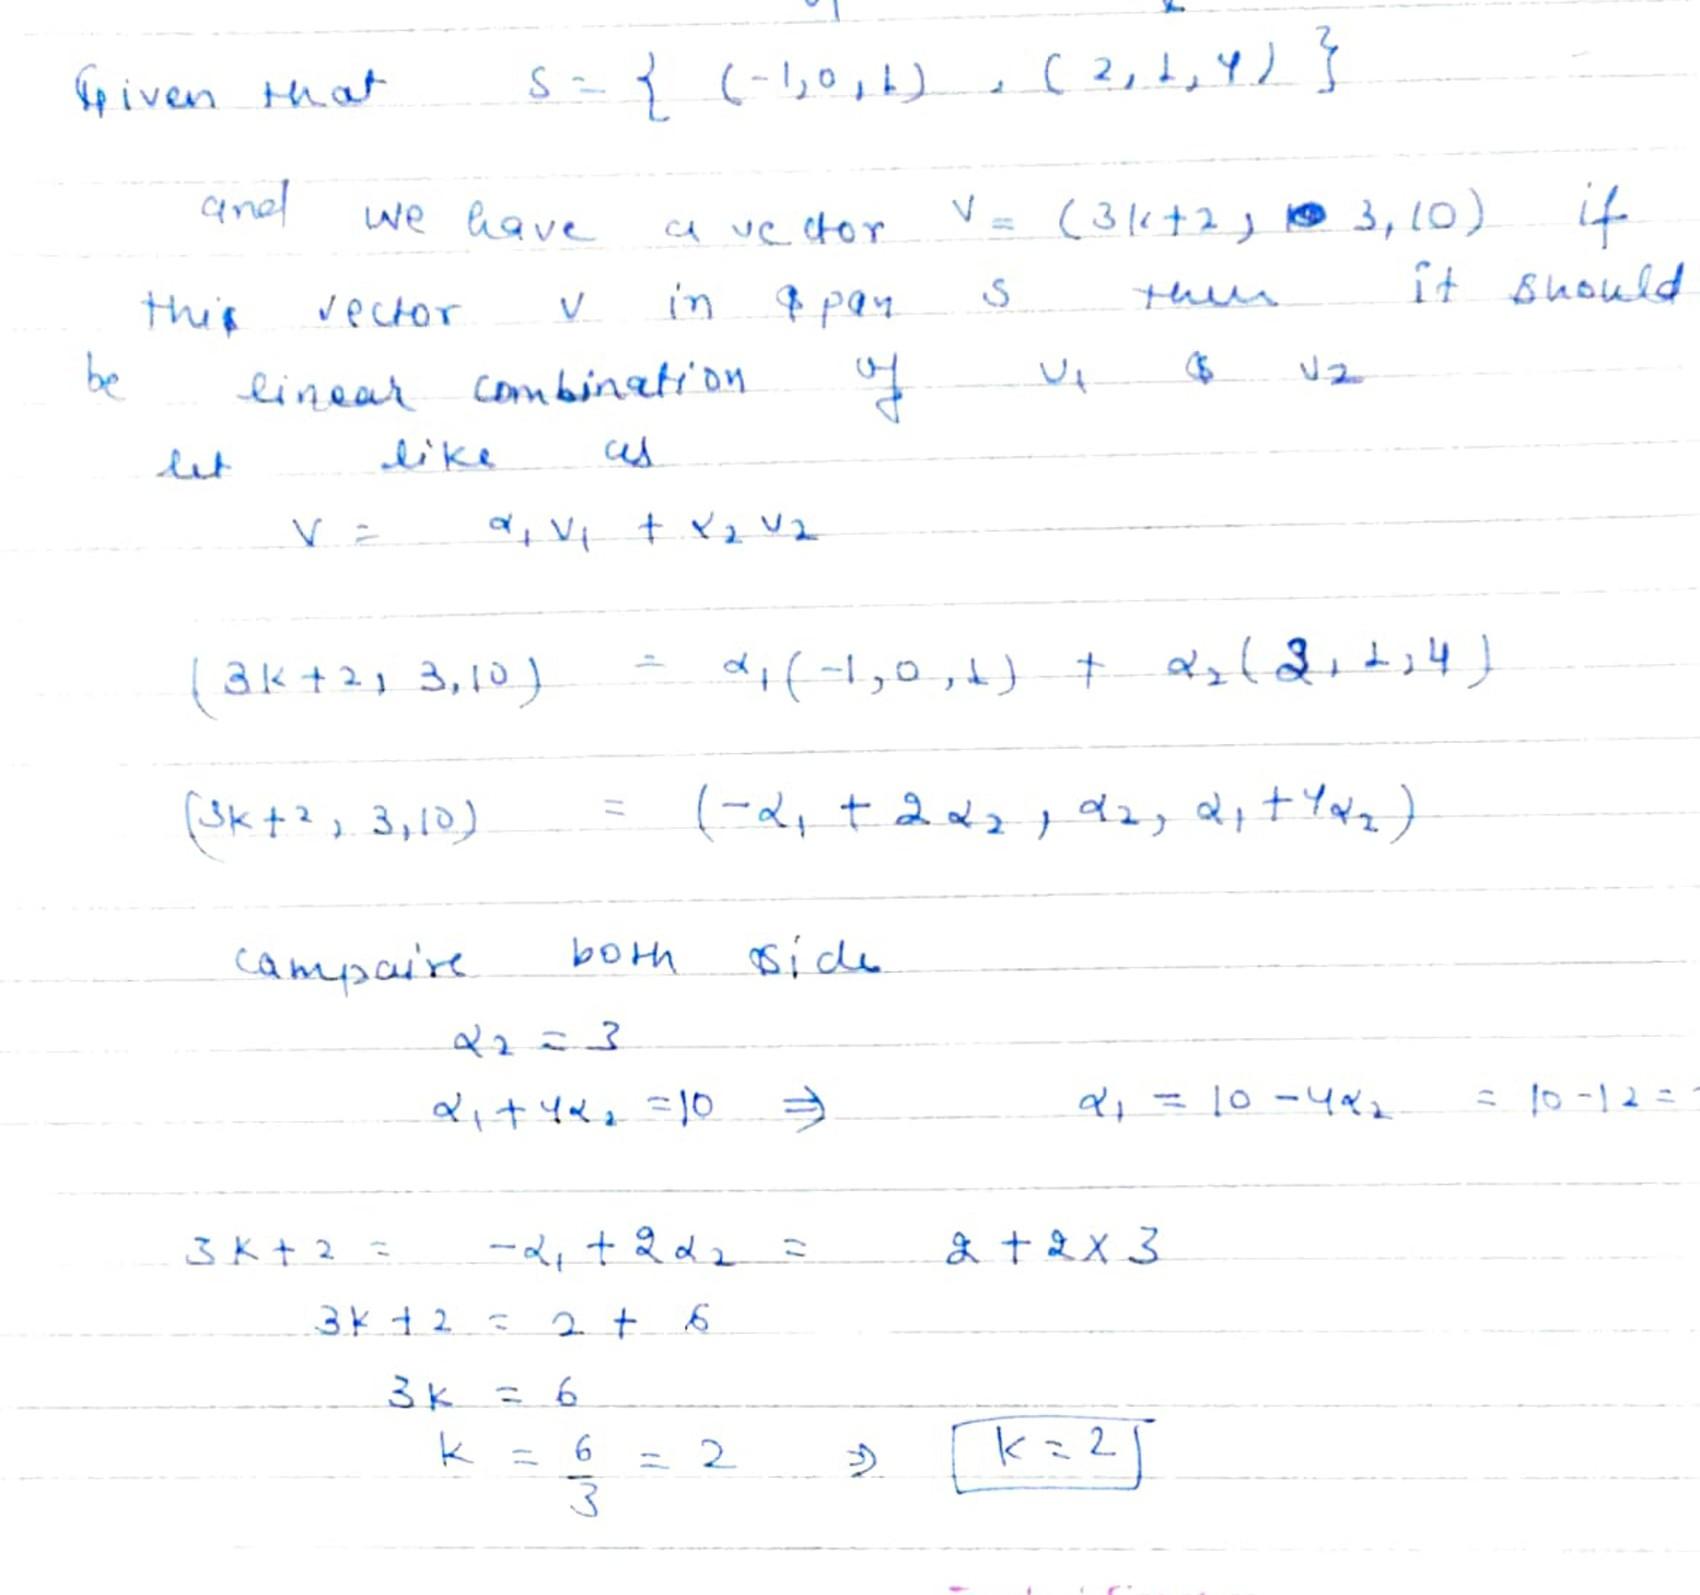 Given that S = { (-1,0,1) , (2,1,4) }
and we have a vector V = (3k+2, 3,10) if
this vector v in span S then it should
be linear combination of v1 & v2
let like as
V = α1 V1 + α2 V2
(3k+2, 3,10) = α1(-1,0,1) + α2(2,1,4)
(3k+2, 3,10) = (-α1 + 2α2, α2, α1+4α2)
campaire both side
α2 = 3
α1+4α2 =10 ⇒ α1 = 10-4α2 = 10-12 =
3k+2 = -α1+2α2 = 2+2×3
3k+2 = 2+6
3k = 6
k = 6/3 = 2 ⇒ k=2